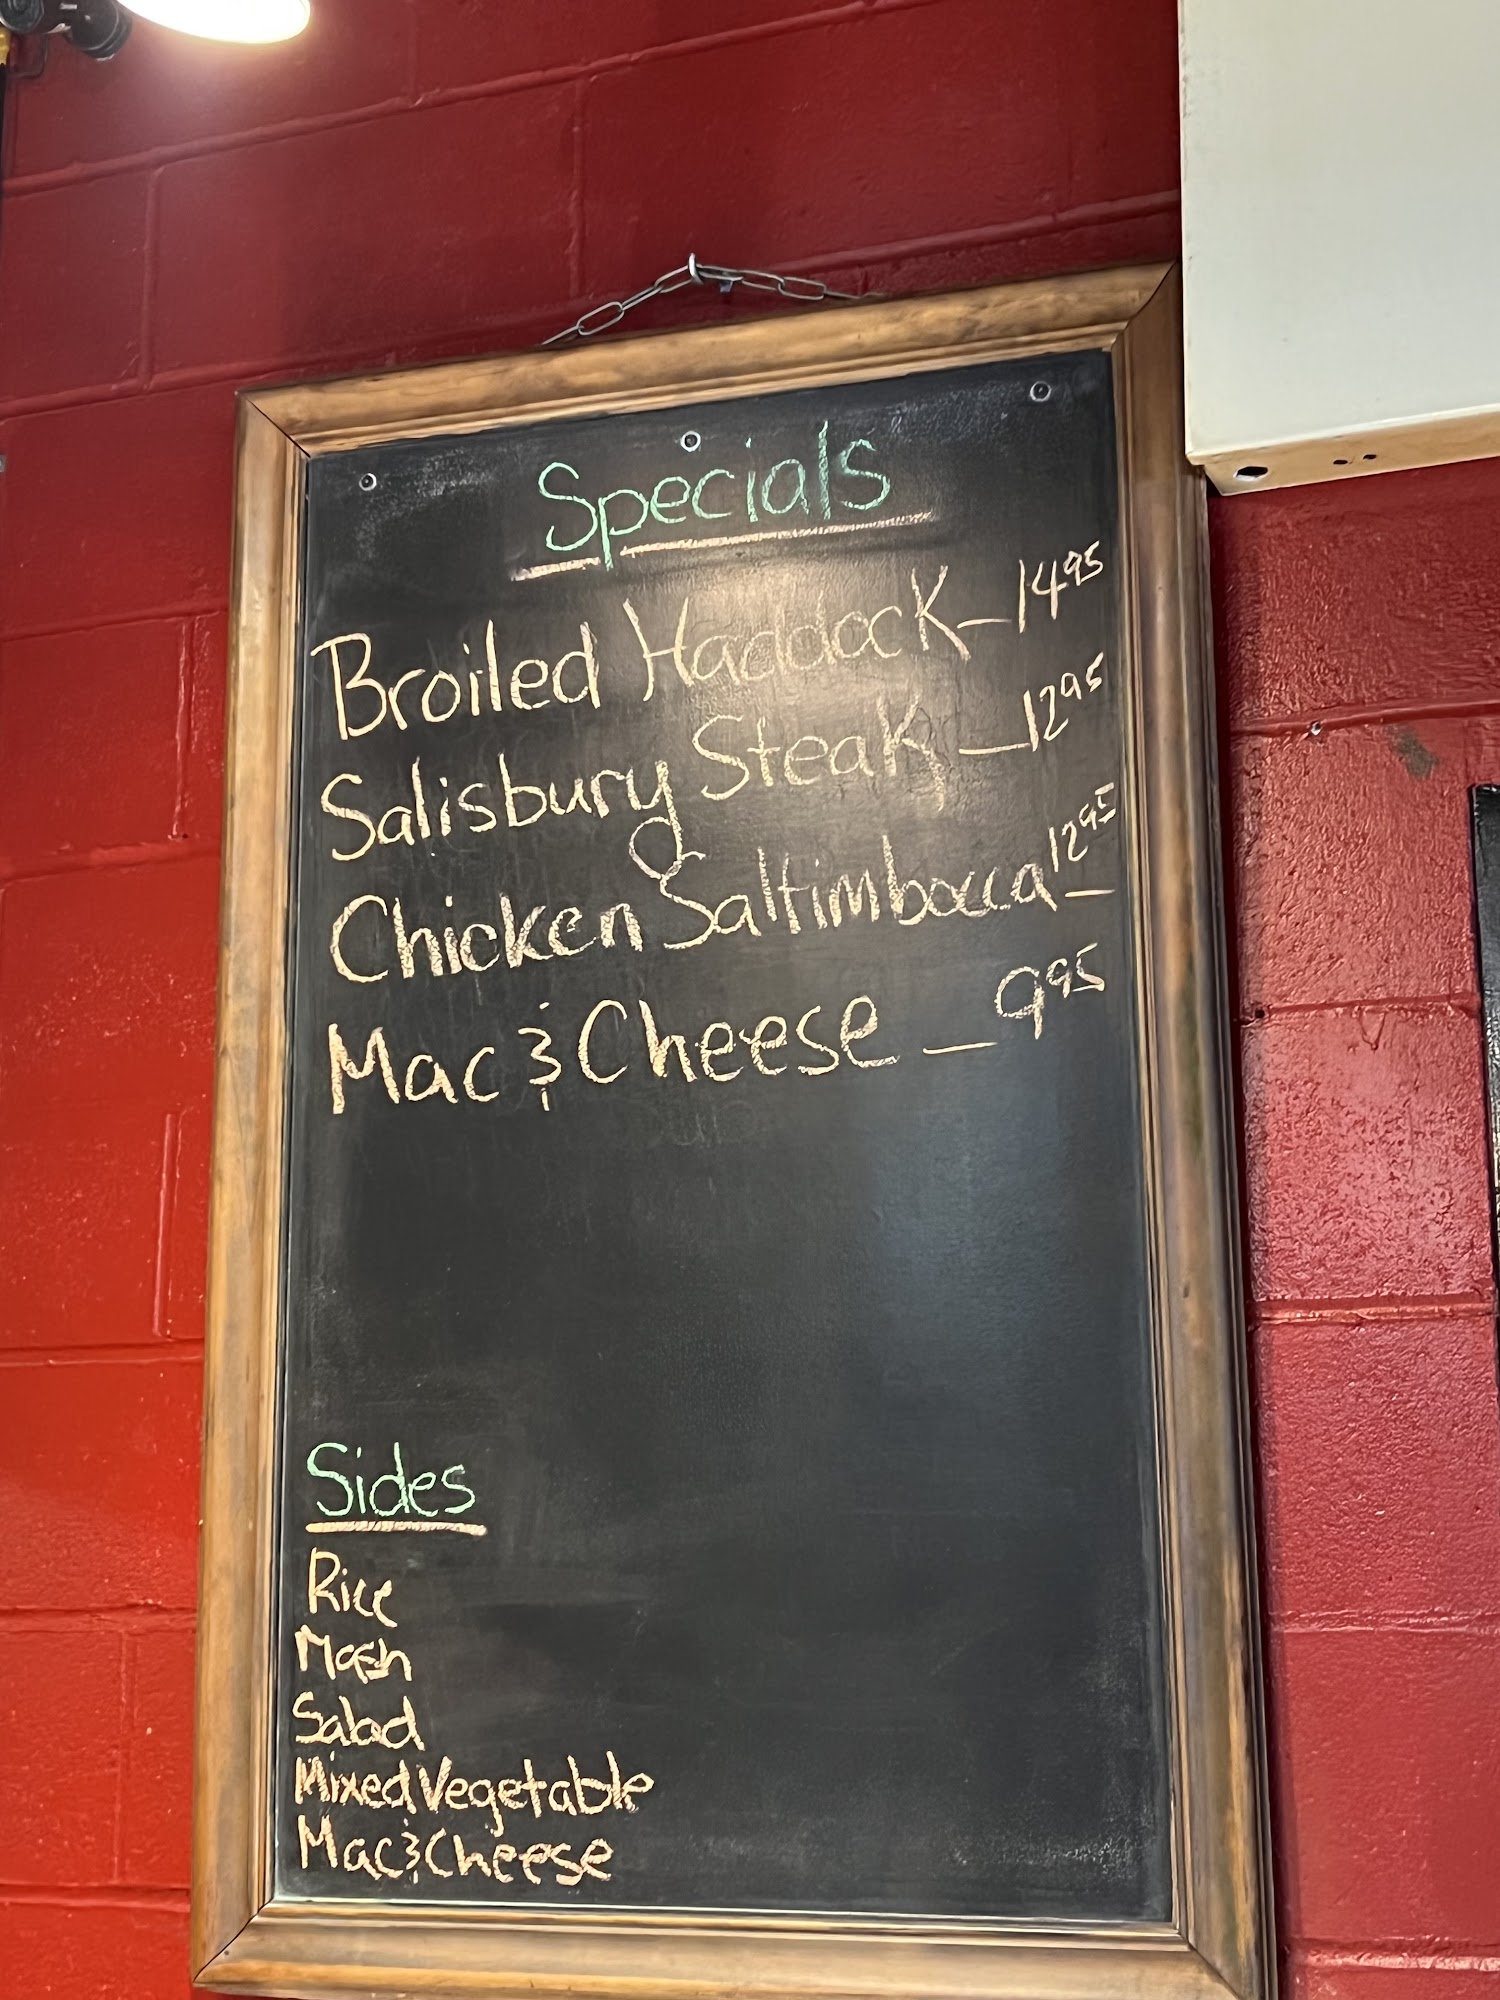 Specials
Broiled Haddock - 14 95
Salisbury Steak - 12 95
Chicken Saltimbocca 12 95
Mac & Cheese - 9 95
Sides
Rice
Mash
Salad
Mixed Vegetable
Mac & Cheese